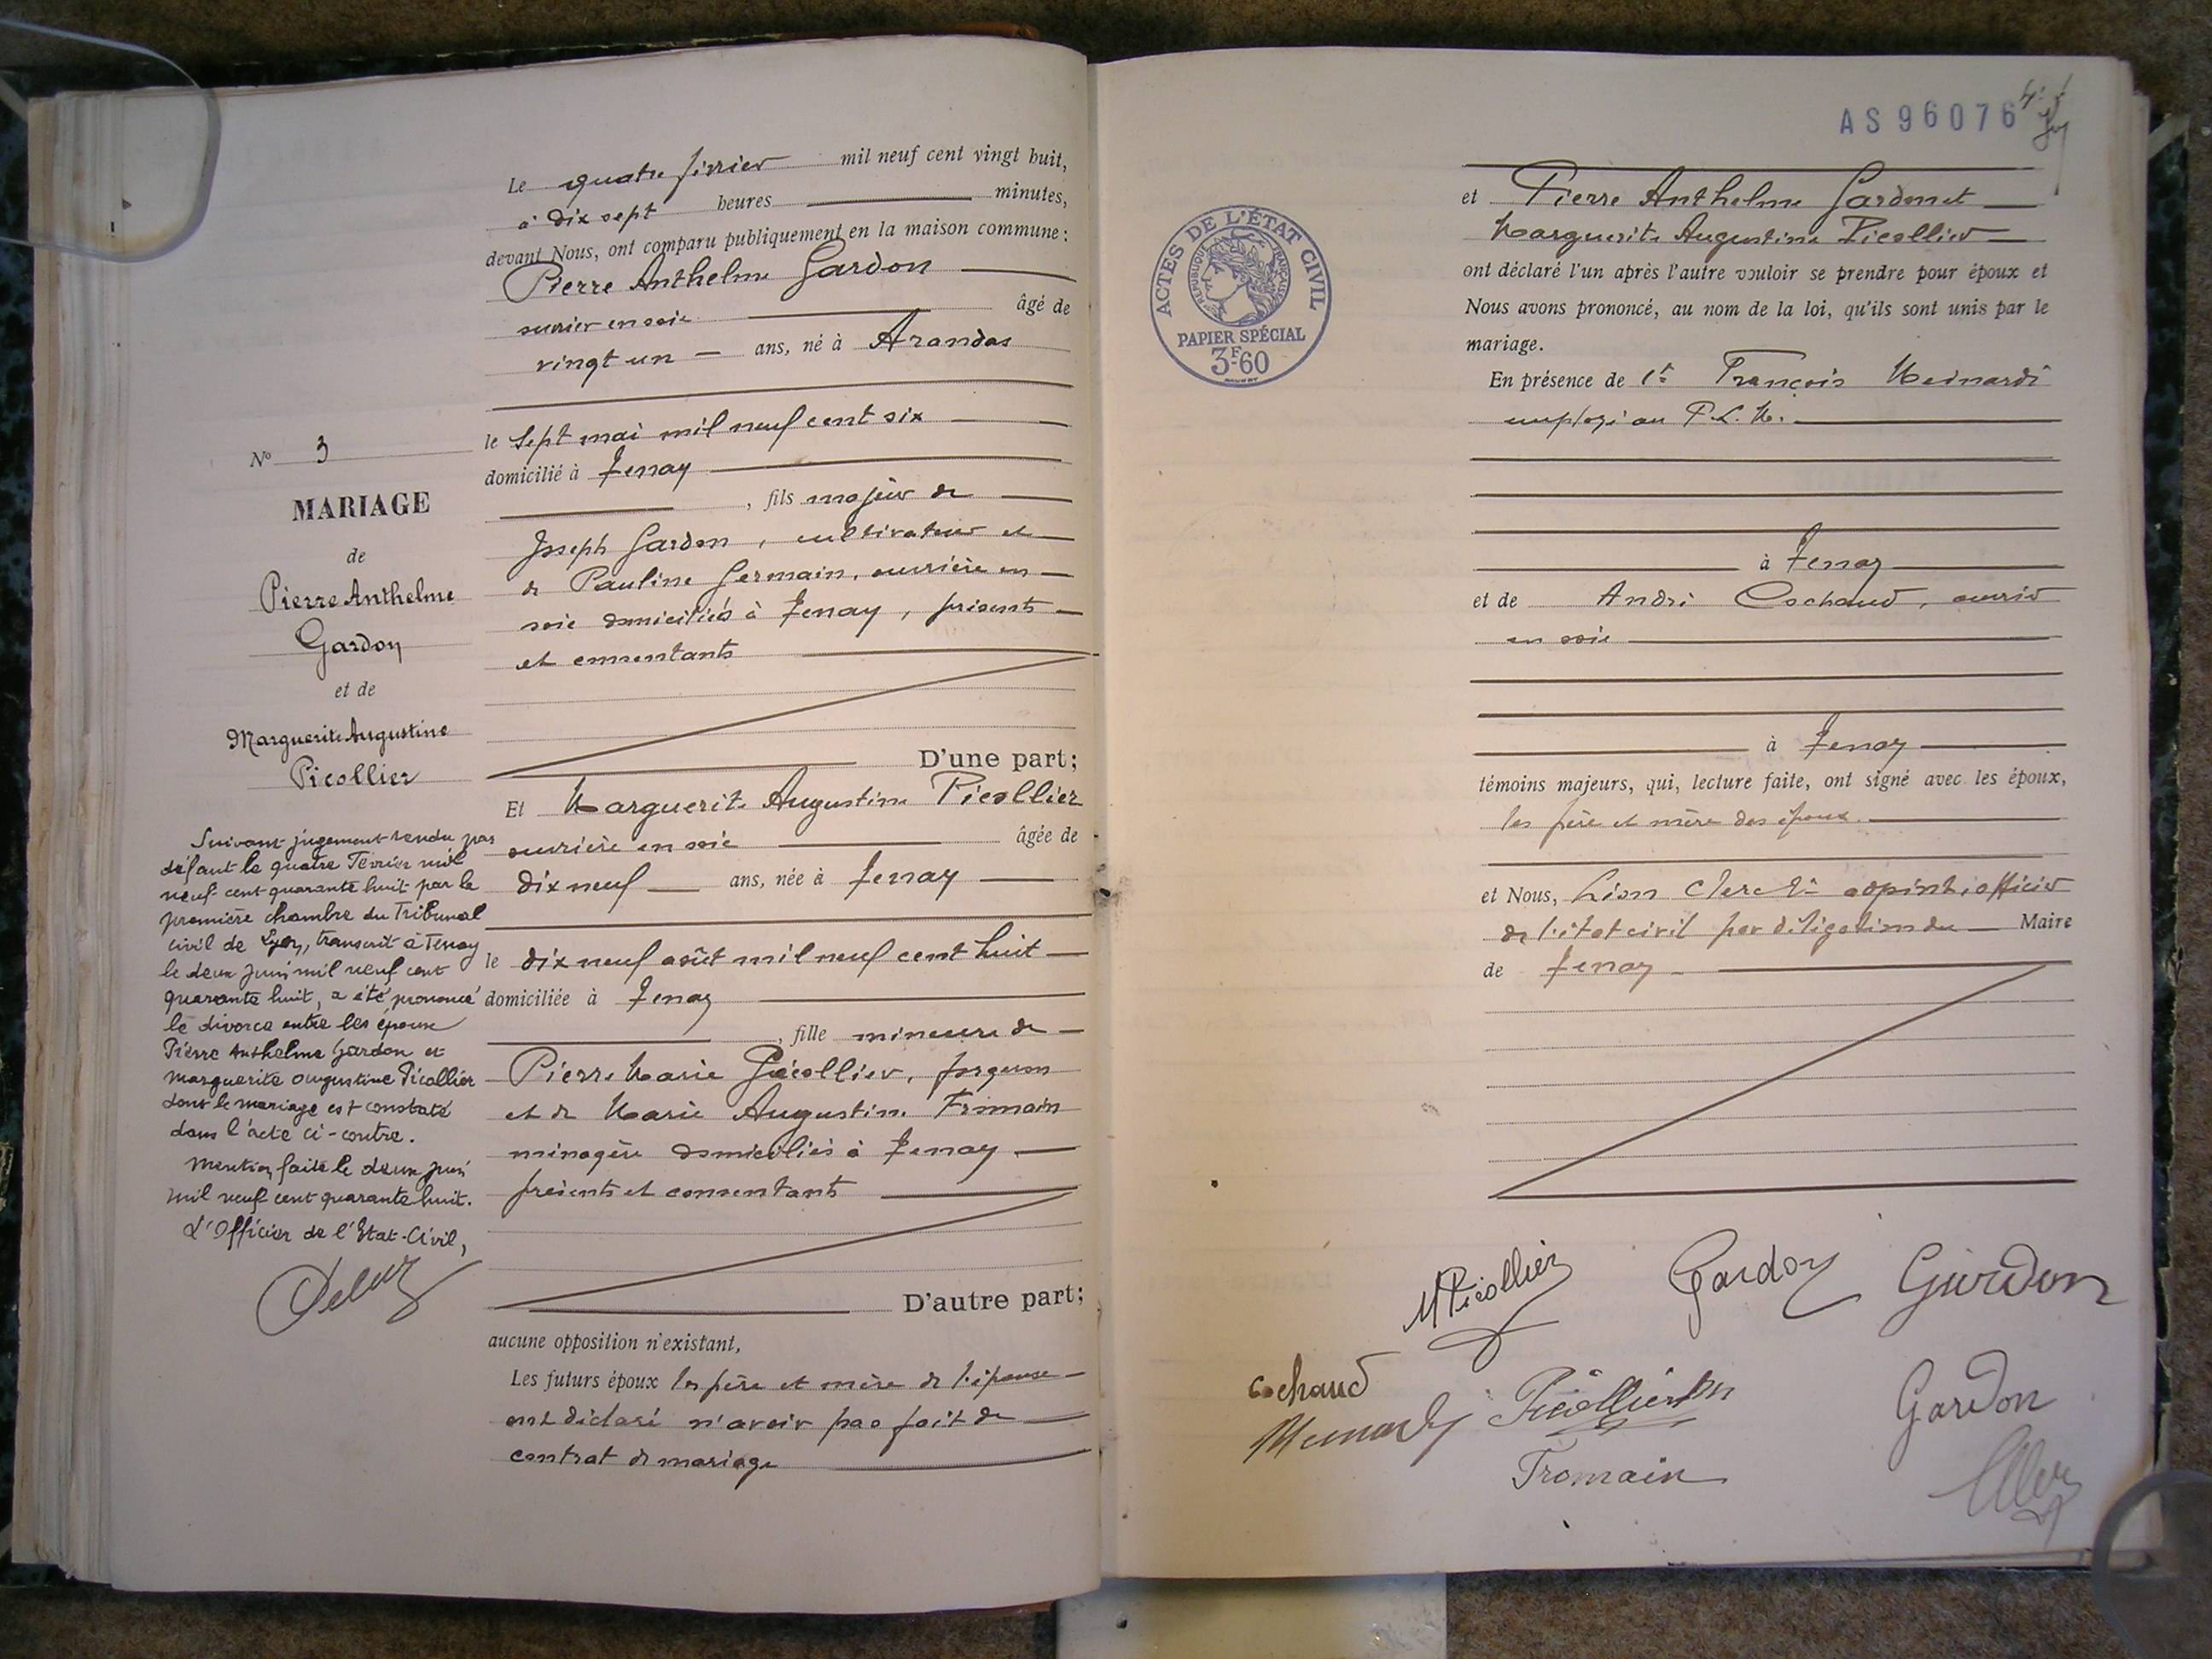 N° 3
MARIAGE
de
Pierre Anthelme
Gardon
et de
Marguerite Augustine
Picollier
Suivant jugement rendu par
défaut le quatre Février mil
neuf cent quarante huit par la
première chambre du Tribunal
civil de Lyon, transcrit à Tenay
le deux juin mil neuf cent
quarante huit, a été prononcé
le divorce entre les époux
Pierre Anthelme Gardon et
Marguerite Augustine Picollier
dont le mariage est constaté
dans l'acte ci-contre.
Mention faite le deux juin
mil neuf cent quarante huit.
L'Officier de l'Etat-Civil,
Le quatre février mil neuf cent vingt huit,
à dix sept heures minutes,
devant Nous, ont comparu publiquement en la maison commune :
Pierre Anthelme Gardon
ouvrier en soie âgé de
vingt un ans, né à Arandas
le sept mai mil neuf cent six
domicilié à Tenay
, fils majeur de
Joseph Gardon, cultivateur et
de Pauline Germain, ouvrière en
soie domiciliés à Tenay, présents
et consentants
D'une part;
Et Marguerite Augustine Picollier
ouvrière en soie âgée de
dix neuf ans, née à Tenay
le dix neuf août mil neuf cent huit
domiciliée à Tenay
, fille mineure de
Pierre Marie Picollier, forgeron
et de Marie Augustine Fromain
ménagère domiciliés à Tenay
présents et consentants
D'autre part;
aucune opposition n'existant,
Les futurs époux les père et mère de l'épouse
ont déclaré n'avoir pas fait de
contrat de mariage
AS 96076
ACTES DE L'ÉTAT CIVIL
RÉPUBLIQUE FRANÇAISE
PAPIER SPÉCIAL
3F60
et Pierre Anthelme Gardon et
Marguerite Augustine Picollier
ont déclaré l'un après l'autre vouloir se prendre pour époux et
Nous avons prononcé, au nom de la loi, qu'ils sont unis par le
mariage.
En présence de François Meinardi
employé au P.L.M.
à Tenay
et de André Cochaud, ouvrier
en soie
à Tenay
témoins majeurs, qui, lecture faite, ont signé avec les époux,
les père et mère des époux.
et Nous, Léon Clerc adjoint, officier
de l'état civil par délégation du Maire
de Tenay
M Picollier Gardon Gardon
Cochaud Picollier Gardon
Fromain